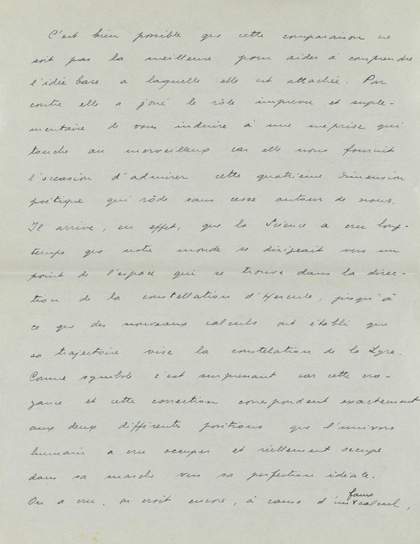 C'est bien posible que cette comparaison ne
soit pas la meilleure pour aider a comprendre
l'idée base a laquelle elle est attachée. Par
contre elle a joué le rôle imprevu et suplé-
mentaire de vous induire à une meprise qui
touche au merveilleux car elle nous fournit
l'occasion d'admirer cette quatrième dimension
poétique qui rôde sans cesse autour de nous.
Il arrive, en effet, que la Science a cru long-
temps que notre monde se dirigeait vers un
point de l'espace qui se trouve dans la direc-
tion de la constellation d'Hercule, jusqu'à
ce que des nouveaux calculs ont établi que
sa trajectoire vise la constelation de la Lyre.
Comme symbole c'est surprenant car cette cro-
yance et cette correction correspondent exactement
aux deux différents positions que l'univers
humain a cru occuper et réellement occupe
dans sa marche vers sa perfection idéale.
On a cru, on croit encore, à cause d'un faux calcul,